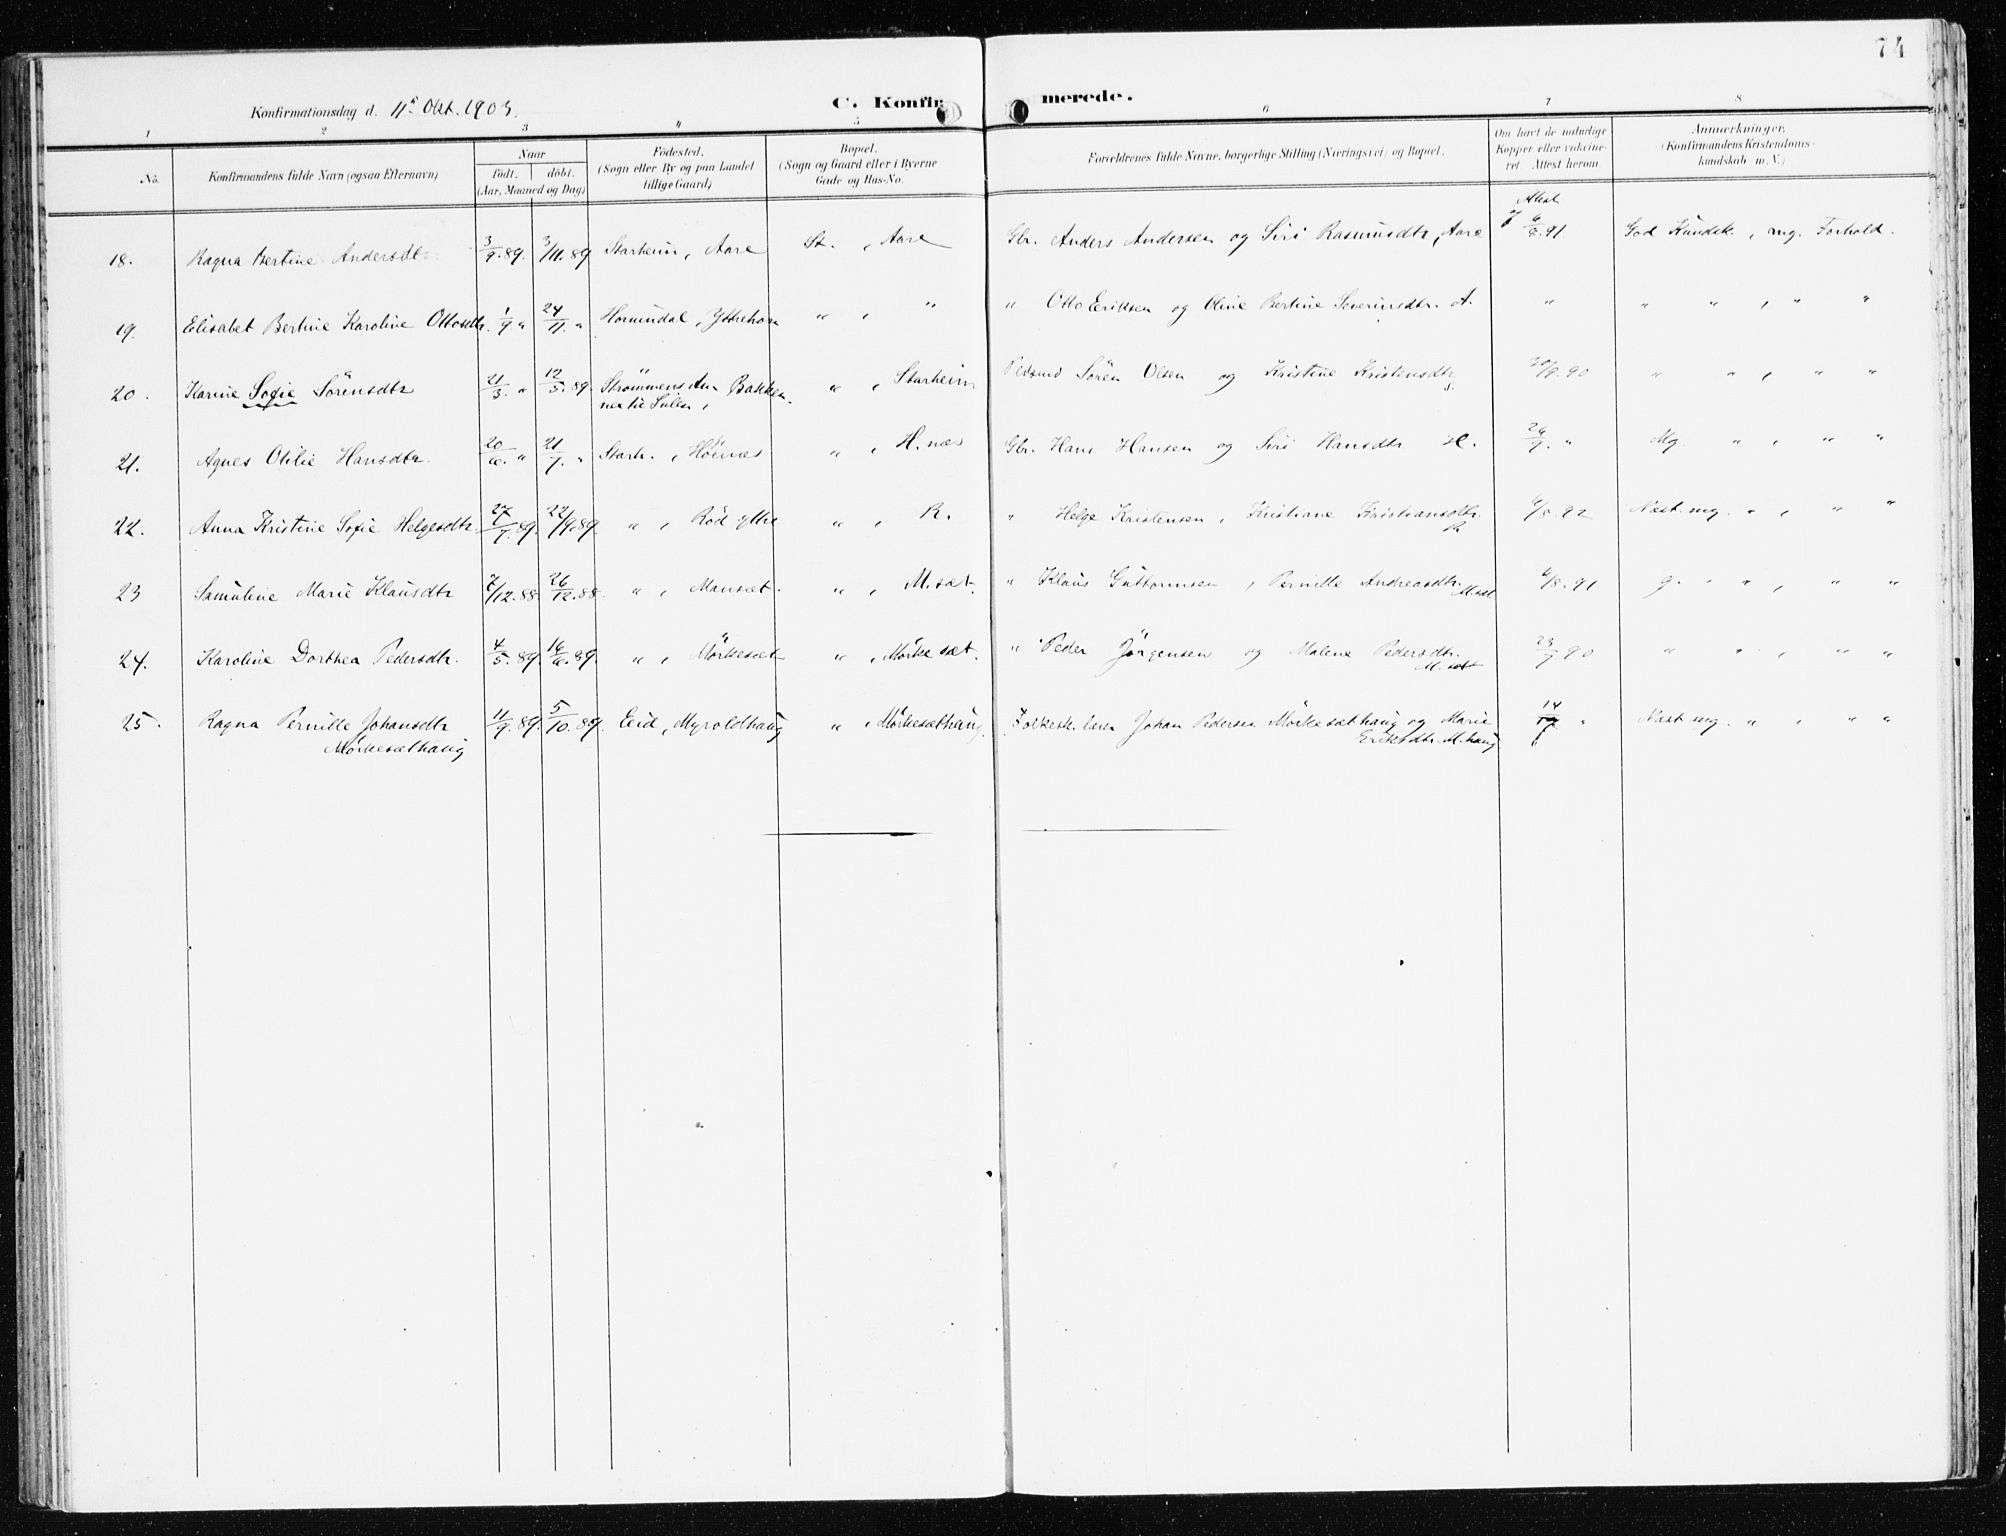 74
Konfirmationsdag d. 11te Okt. 1903.
C. Konfir merede.
1 2 3 4 5 6 7 8
No. Konfirmandens fulde Navn (ogsaa Efternavn) Naar født. døbt. (Aar, Maaned og Dag) Fødested. (Sogn eller By og paa Landet tillige Gaard) Bopæl. (Sogn og Gaard eller i Byerne Gade og Hus-No. Forældrenes fulde Navne, borgerlige Stilling (Næringsvei) og Bopæl. Om havt de naturlige Kopper eller vakcineret. Attest herom. Anmærkninger. (Konfirmandens Kristendomskundskab m. V.)
18. Ragna Bertine Andersdtr. 3/9.89. 3/11.89 Starheim, Aare St. , Aare Gbr. Anders Andersen og Siri Rasmusdtr, Aare Attest 6/6.91 God Kundsk., mg. Forhold.
19. Elisabet Bertine Karoline Ottosdtr. 1/9 " 24/11. " Hornindal, Ytrehorn " , " " Otto Eriksen og Oline Bertine Severinsdtr. A. " " " , " "
20. Karine Sofie Sörensdtr 21/3 " 12/5.89. Strömmens Ann Bakken. " , Starheim Sören Olsen og Kristine Kristensdtr S. 30/9.90 " " , " "
21. Agnes Otilie Hansdtr. 20/6. " 21/7. " Starh., Höinæs " , H.næs Gbr. Hans Hansen og Siri Hansdtr H. 26/9. " Mg. " , " "
22. Anna Kristine Sofie Helgesdtr 27/7.89. 22/9.89. " , Röd ytre " , R. " Helge Kristensen, Kristiane Kristiansdtr. R 6/8.92 Næst. mg. " , " "
23 Samuline Marie Klausdtr 7/12.88. 26/12.88. " , Mansæt. " , M.sæt. " Klaus Guttormsen, Pernille Andreasdtr. M.sæt 6/8.91 g. " " , " "
24. Karoline Dorthea Pedersdtr. 4/5.89. 16/6.89. " , Mörkesæt " , Mörkesæt. " Peder Jörgensen og Malene Pedersdtr. M.sæt 23/9.90 " " , " "
25. Ragna Pernille Johansdtr Mörkesæthaug 11/9.89. 5/10.89. Eid, Myroldhaug " , Mörkesæthaug. Folkesk.lærer Johan Pedersen Mörkesæthaug og Marie Eriksdtr. M.haug " Næst mg. " , " "